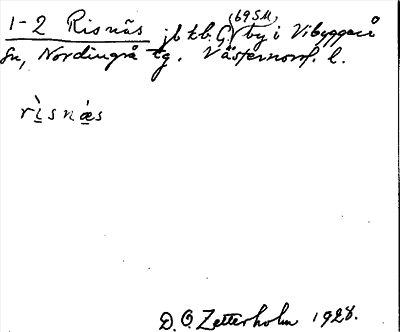 1-2 Risnäs jb tb. G. (69SM) by i Vibyggerå
sn, Nordingrå tg. Västernorrl. l.
rìsnæs
D. O. Zetterholm 1928.